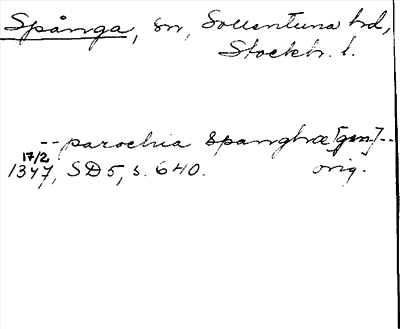 Spånga, sn, Sollentuna hd,
Stockh. l.
-- parochia Spanghæ [gen] --
17/2
1347, SD 5, s. 640. orig.